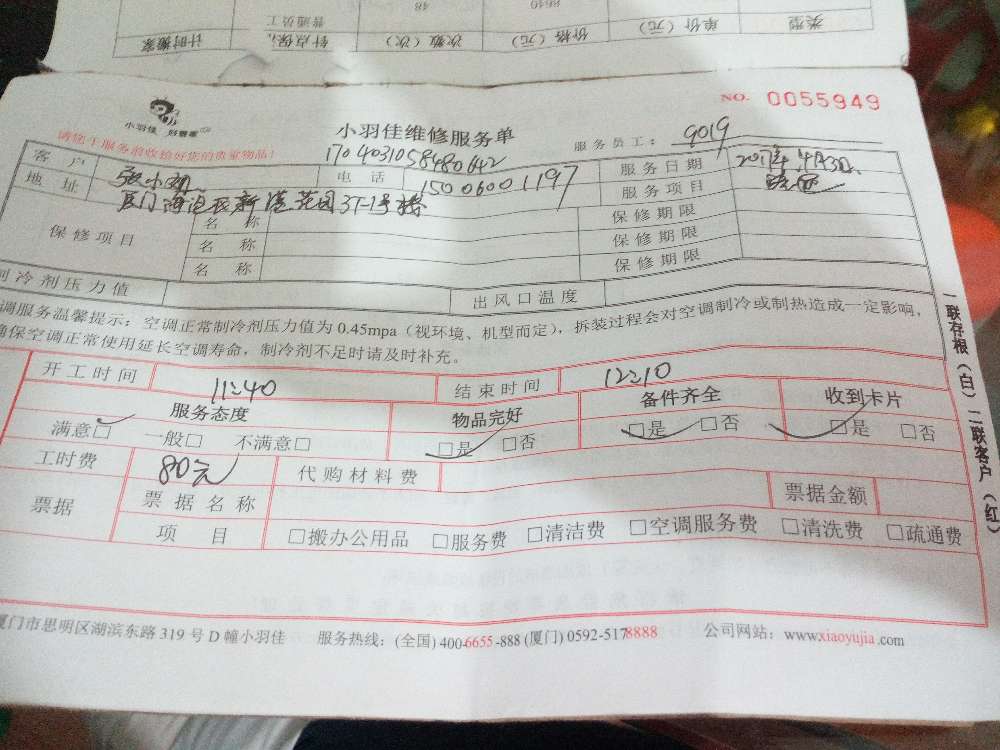 类型 单价(元) 价格(元) 次数(次) 计时搬家
8640 48 普通员工
NO. 0055949
小羽佳 好管家
小羽佳维修服务单
服务员工: 9019
请您于服务前收捡好您的贵重物品!
1704031058480642
客户 张小 电话 15006001197 服务日期 2017年4月3日
地址 厦门海沧区新港花园37-1号楼 服务项目
保修项目 名称 保修期限
名称 保修期限
名称 保修期限
制冷剂压力值 出风口温度
调服务温馨提示:空调正常制冷剂压力值为 0.45mpa(视环境、机型而定),拆装过程会对空调制冷或制热造成一定影响,
确保空调正常使用延长空调寿命,制冷剂不足时请及时补充。
开工时间 11:40 结束时间 12:10
服务态度 物品完好 备件齐全 收到卡片
满意□ 一般□ 不满意□ □是 □否 □是 □否 □是 □否
工时费 80元 代购材料费
票据 票据名称 票据金额
项目 □搬办公用品 □服务费 □清洁费 □空调服务费 □清洗费 □疏通费
一联存根(白)二联客户(红)
厦门市思明区湖滨东路 319 号 D 幢小羽佳 服务热线:(全国) 400-6655-888 (厦门) 0592-5178888 公司网站:www.xiaoyujia.com